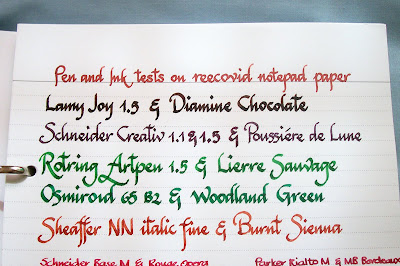 Pen and Ink tests on reecovid notepad paper
Lamy Joy 1.5 & Diamine Chocolate
Schneider Creativ 1.1 & 1.5 & Poussiére de Lune
Rotring Artpen 1.5 & Lierre Sauvage
Osmiroid 65 B2 & Woodland Green
Sheaffer NN italic fine & Burnt Sienna
Schneider Base M & Rouge Opera
Parker Rialto M & MB Bordeaux